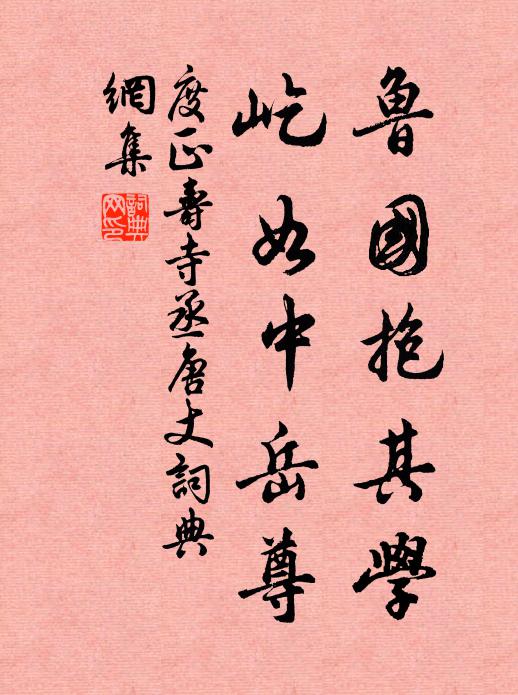 魯國抱其學
屹如中岳尊
度正壽寺丞唐丈詞典
網集
詞典網印